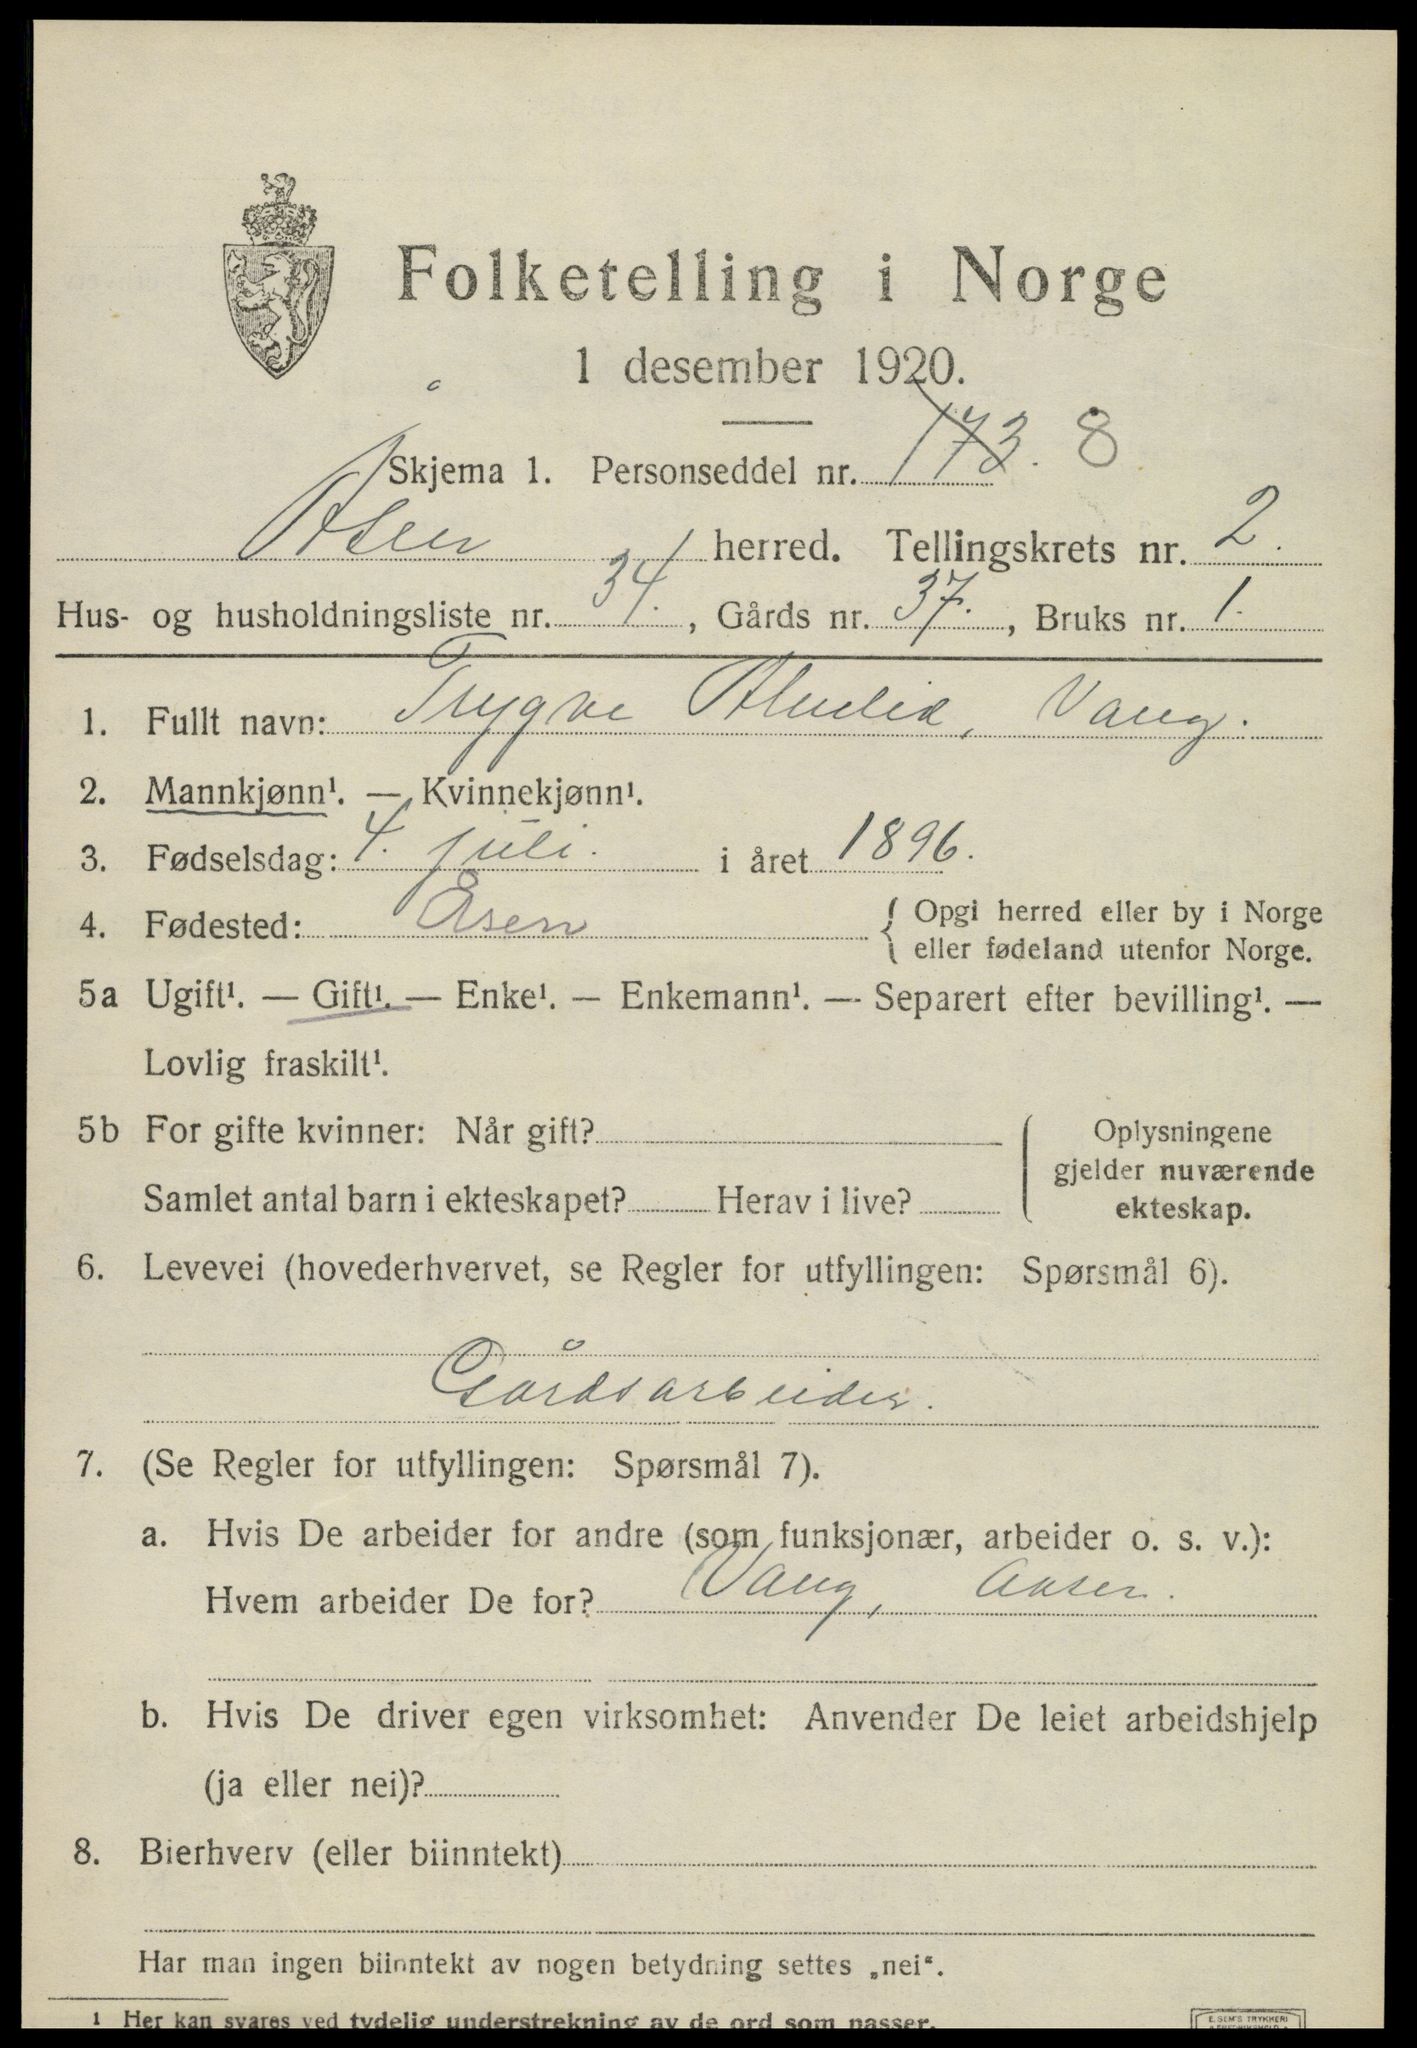 Folketelling i Norge
1 desember 1920.
Skjema 1. Personseddel nr. 173. 8
Åsen herred. Tellingskrets nr. 2.
Hus- og husholdningsliste nr. 34., Gårds nr. 37., Bruks nr. 1.
1. Fullt navn: Trygve Almlid, Vang.
2. Mannkjønn¹. — Kvinnekjønn¹.
3. Fødselsdag: 4. juli. i året 1896.
4. Fødested: Åsen { Opgi herred eller by i Norge
eller fødeland utenfor Norge.
5a Ugift¹. — Gift¹. — Enke¹. — Enkemann¹. — Separert efter bevilling¹. —
Lovlig fraskilt¹.
5b For gifte kvinner: Når gift?
Samlet antal barn i ekteskapet? Herav i live?
Oplysningene
gjelder nuværende
ekteskap.
6. Levevei (hovederhvervet, se Regler for utfyllingen: Spørsmål 6).
Gårdsarbeider.
7. (Se Regler for utfyllingen: Spørsmål 7).
a. Hvis De arbeider for andre (som funksjonær, arbeider o. s. v.):
Hvem arbeider De for? Vang, Aasen.
b. Hvis De driver egen virksomhet: Anvender De leiet arbeidshjelp
(ja eller nei)?
8. Bierhverv (eller biinntekt)
Har man ingen biinntekt av nogen betydning settes „nei“.
1 Her kan svares ved tydelig understrekning av de ord som passer.
E. SEM'S TRYKKERI